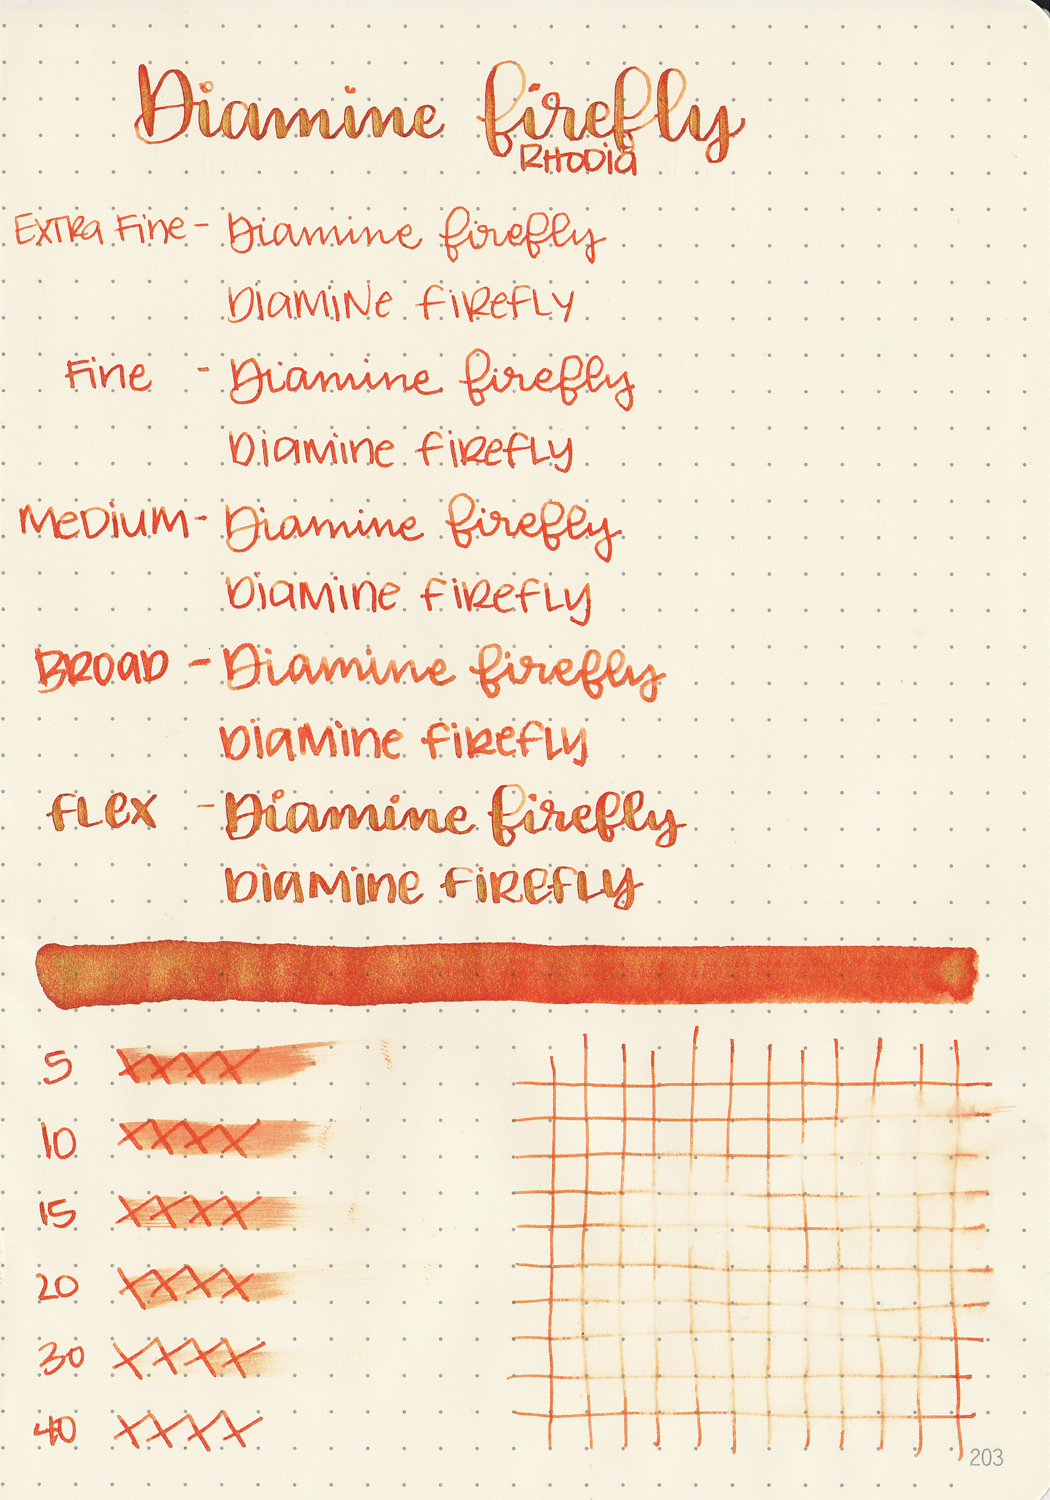 Diamine firefly
RHODIA
EXTRA Fine - Diamine firefly
DiAMiNe FiReFLY
Fine - Diamine firefly
Diamine FiReFLY
MeDiUM - Diamine firefly
DiAMine FiReFLY
BROAD - Diamine firefly
DiAMine FiReFLY
FLex - Diamine firefly
DiAMine FiREFLY
5 XXXX
10 XXXX
15 XXXX
20 XXXX
30 XXXX
40 XXXX
203